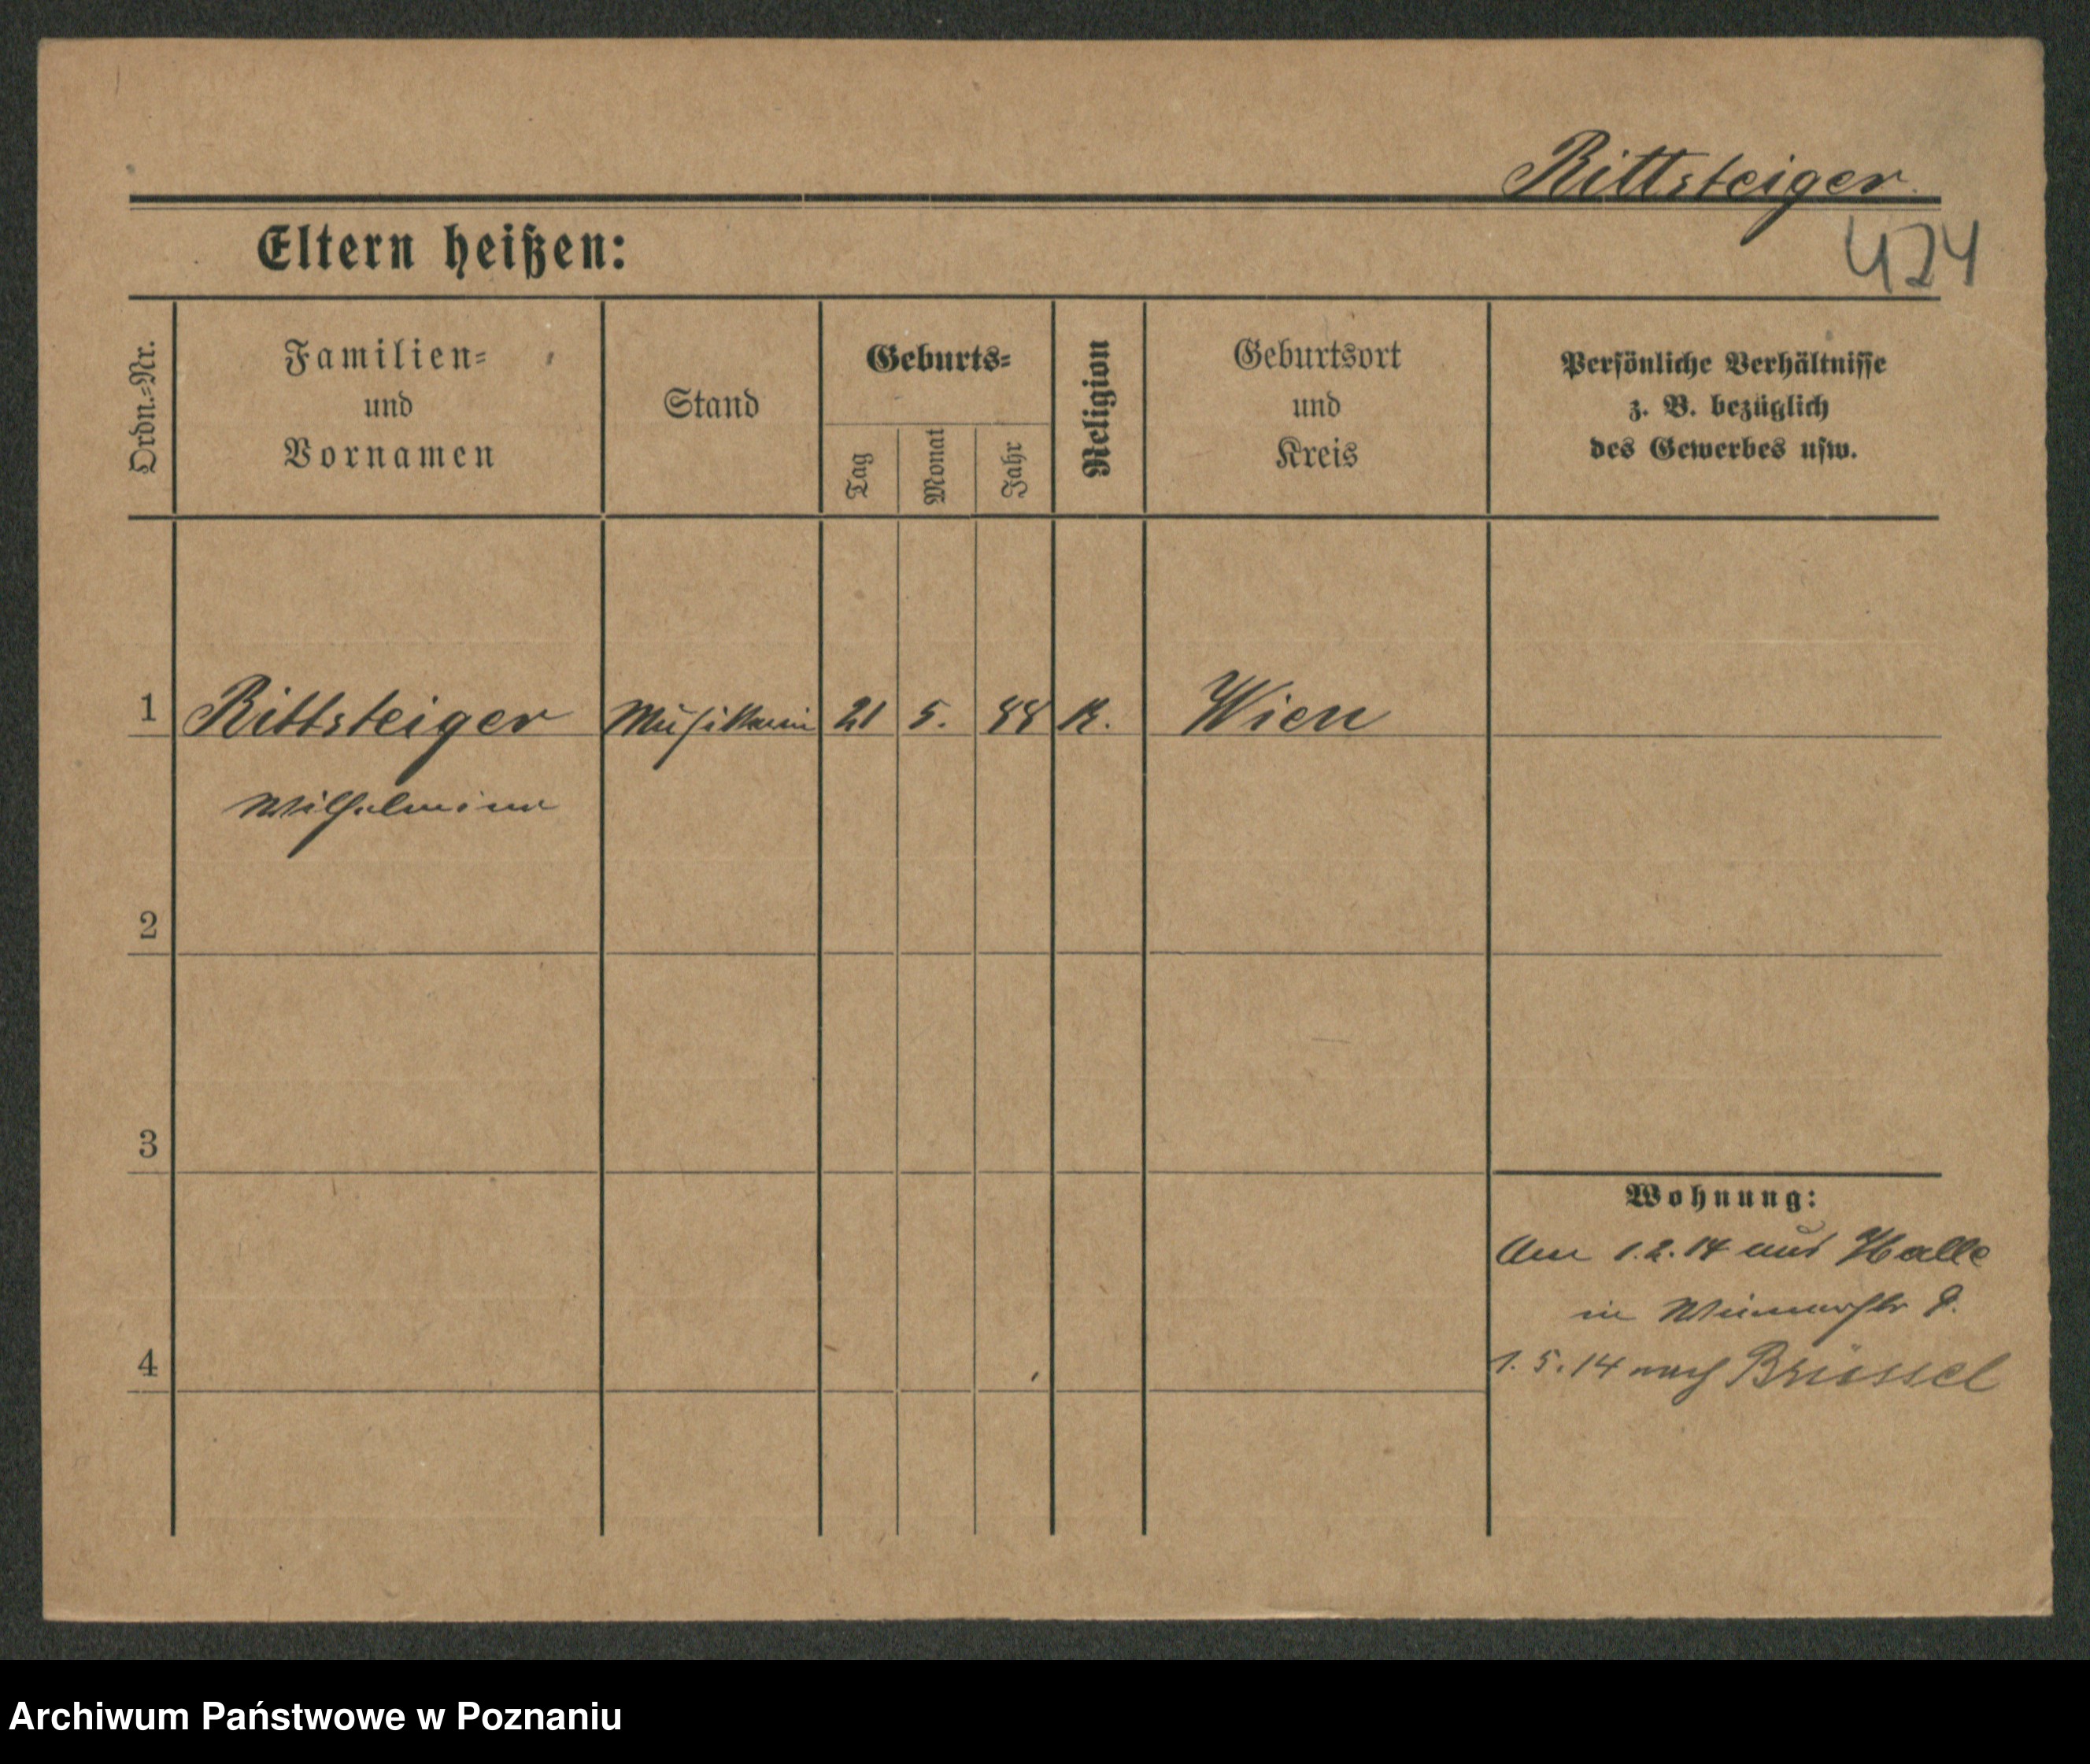 Rittsteiger.
424
Eltern heißen:
Ordn.-Nr.
Familien-
und
Vornamen
Stand
Geburts-
Tag
Monat
Jahr
Religion
Geburtsort
und
Kreis
Persönliche Verhältnisse
z. B. bezüglich
des Gewerbes usw.
1 Rittsteiger Musikerin 21 5. 88 K. Wien
Wilhelmine
2
3
Wohnung:
Am 1.2.14 aus Halle
in 9.
4
1.5.14 nach Brüssel
Archiwum Państwowe w Poznaniu